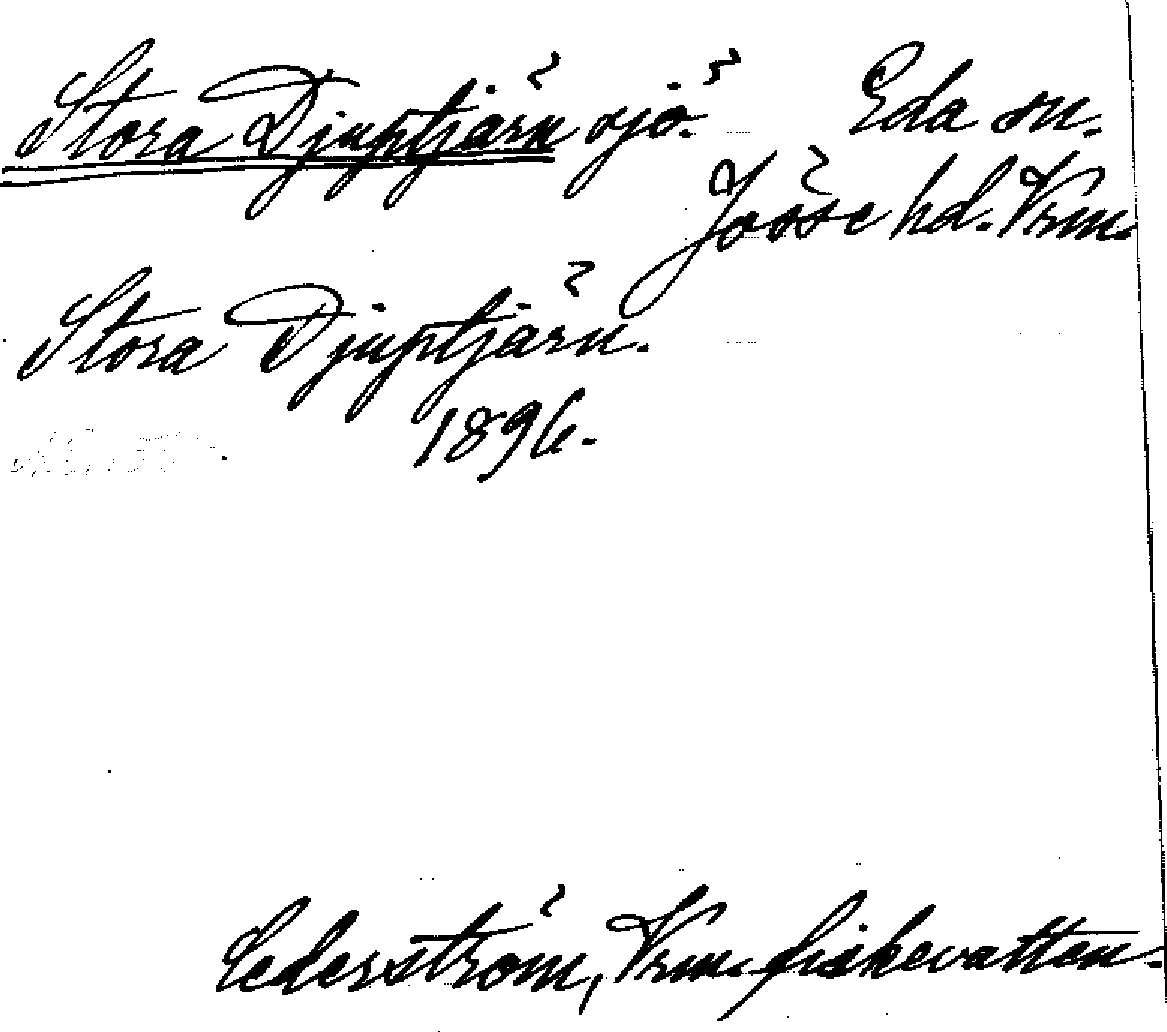 Stora Djuptjärn sjö. Eda sn.
Jösse hd. Vrm.
Stora Djuptjärn.
1896.
Cederström, Vrm. fiskevatten.